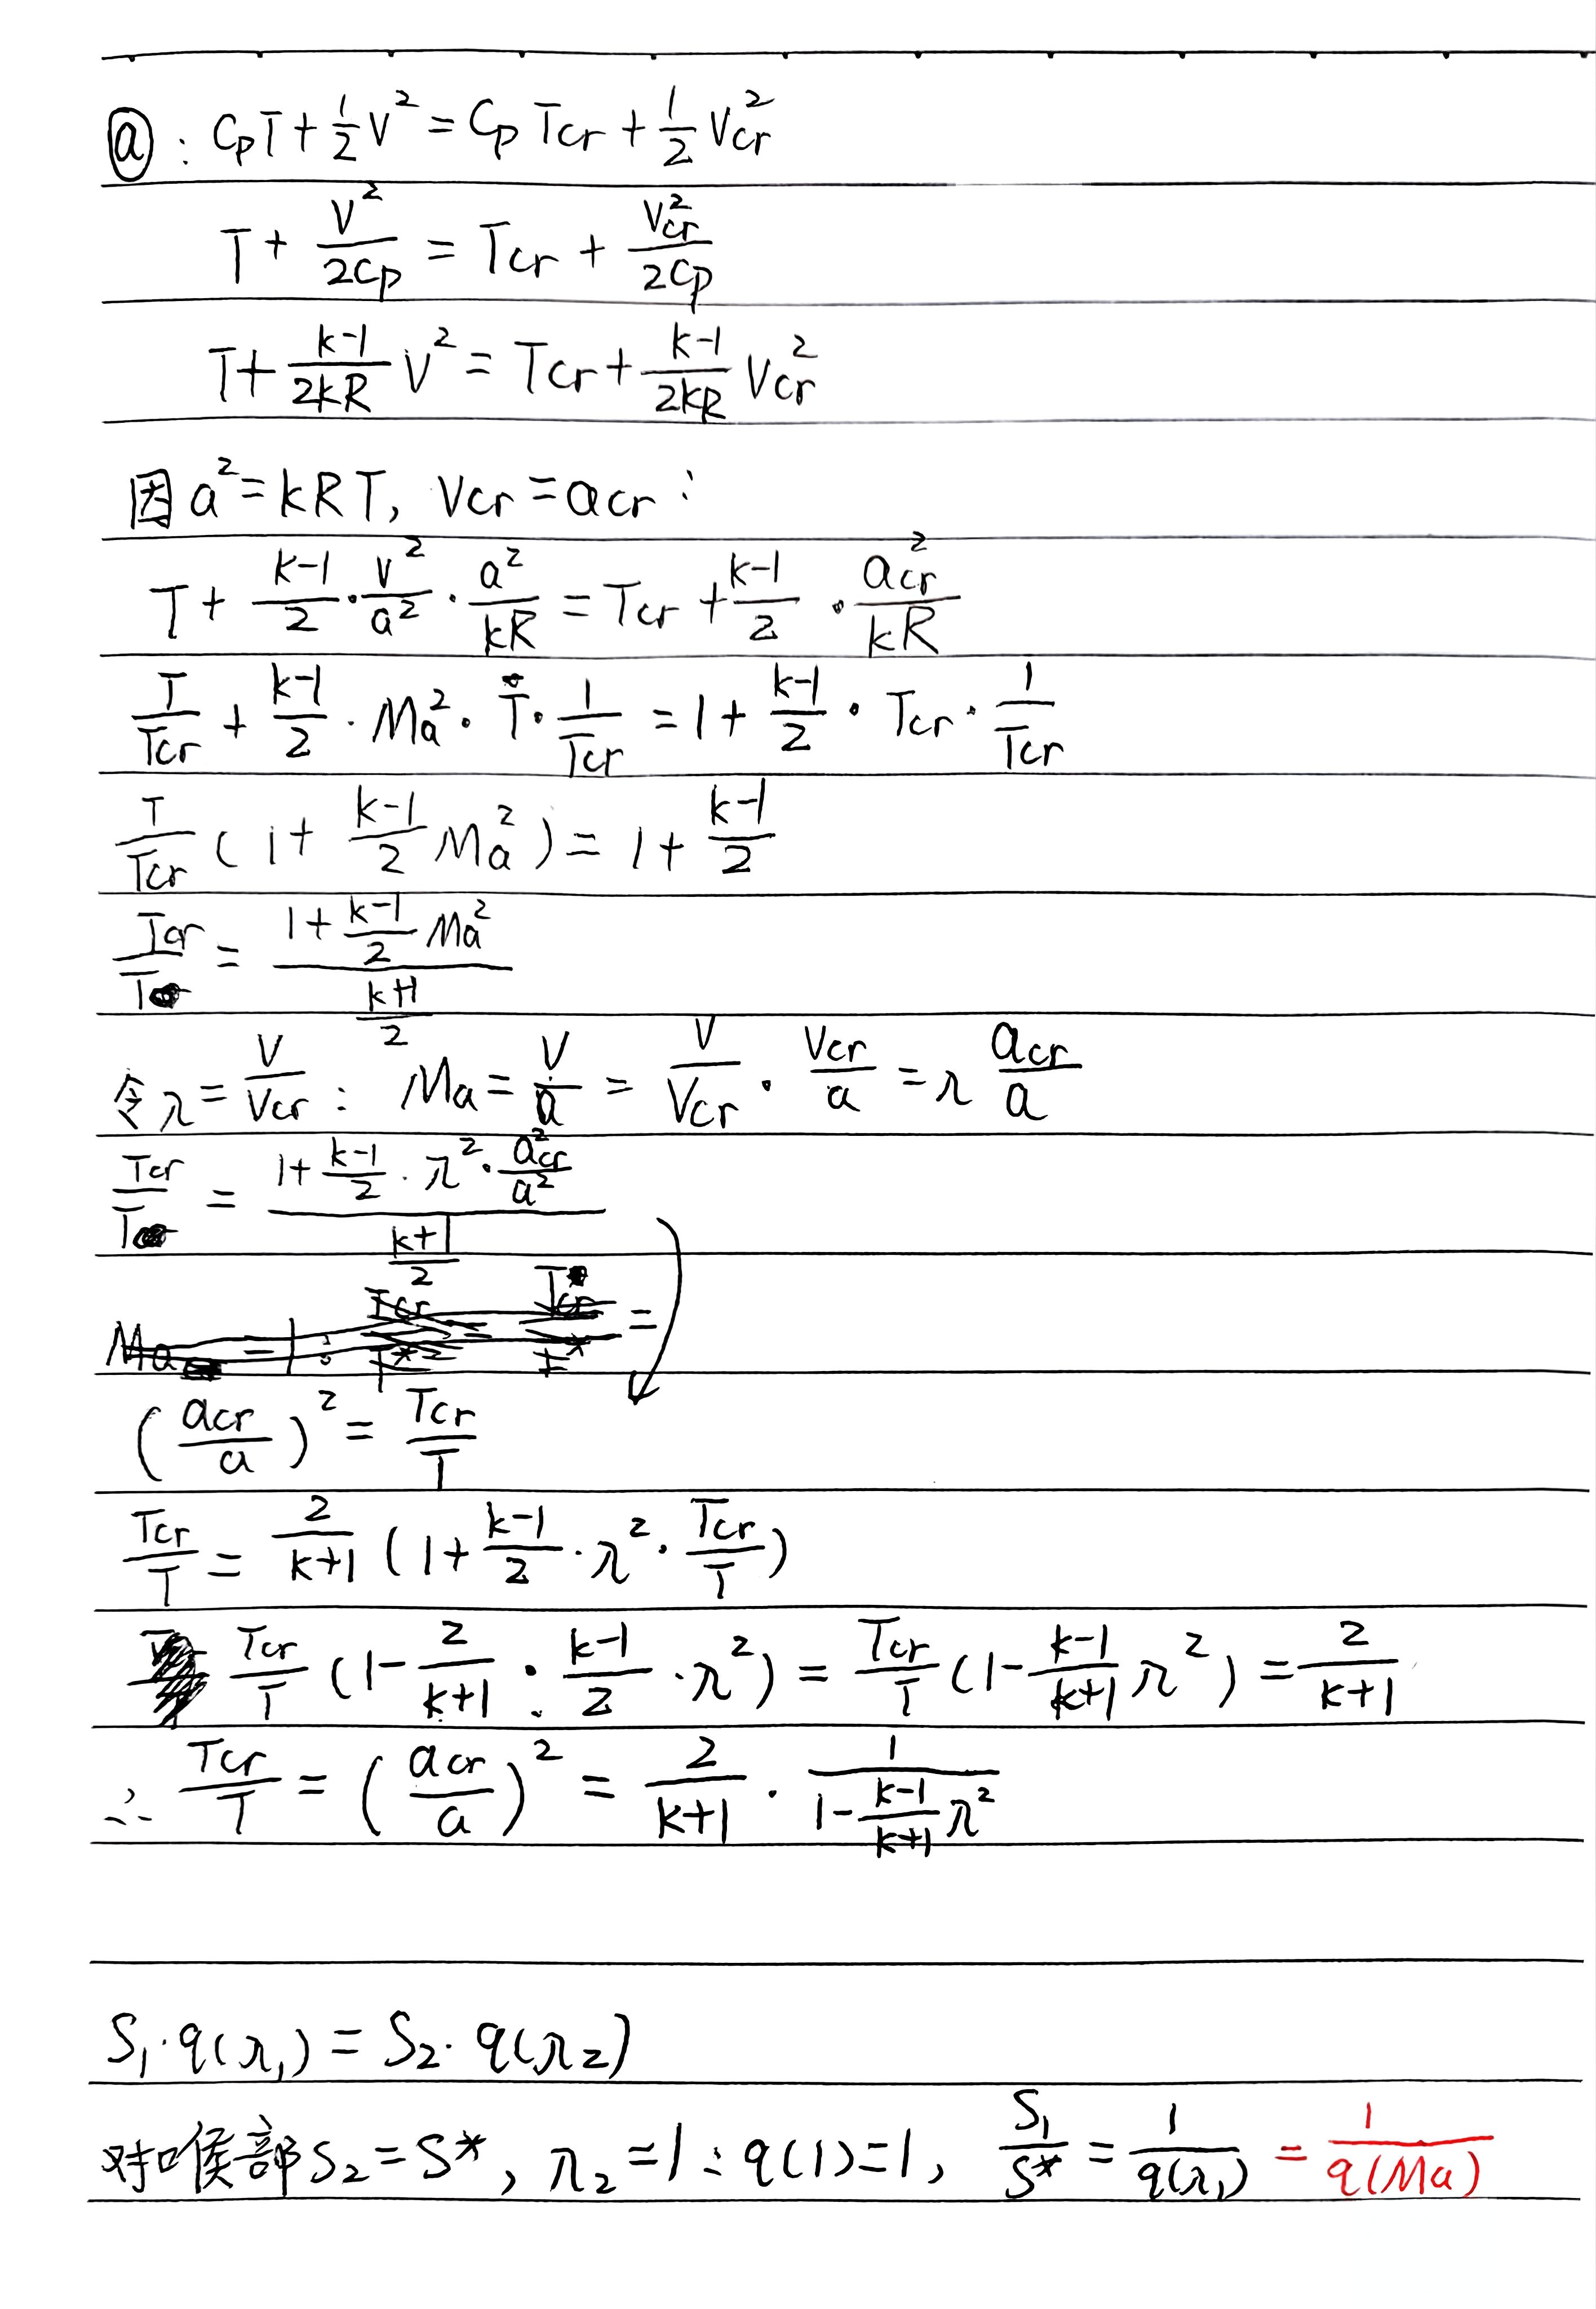 ⓐ: CpT + 1/2 V² = Cp Tcr + 1/2 Vcr²
T + V²/2Cp = Tcr + Vcr²/2Cp
T + (k-1)/2kR V² = Tcr + (k-1)/2kR Vcr²
因 a² = kRT, Vcr = acr :
T + (k-1)/2 · V²/a² · a²/kR = Tcr + (k-1)/2 · acr²/kR
T/Tcr + (k-1)/2 · Ma² · T · 1/Tcr = 1 + (k-1)/2 · Tcr · 1/Tcr
T/Tcr (1 + (k-1)/2 Ma²) = 1 + (k-1)/2
Tcr/T = (1 + (k-1)/2 Ma²)/((k+1)/2)
令λ = V/Vcr : Ma = V/a = V/Vcr · Vcr/a = λ acr/a
Tcr/T = (1 + (k-1)/2 · λ² · acr²/a²)/((k+1)/2)
(acr/a)² = Tcr/T
Tcr/T = 2/(k+1) (1 + (k-1)/2 · λ² · Tcr/T)
Tcr/T (1 - 2/(k+1) · (k-1)/2 · λ²) = Tcr/T (1 - (k-1)/(k+1) λ²) = 2/(k+1)
∴ Tcr/T = (acr/a)² = 2/(k+1) · 1/(1 - (k-1)/(k+1) λ²)
S₁·q(λ₁) = S₂·q(λ₂)
对喉部S₂ = S*, λ₂ = 1 : q(1) = 1, S₁/S* = 1/q(λ₁) = 1/q(Ma)